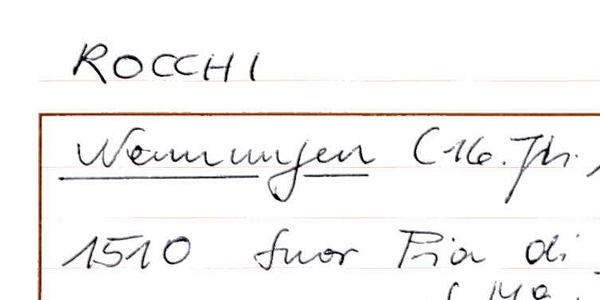 ROCCHI
Nennungen (16. Jh.
1510 Suor Pia di